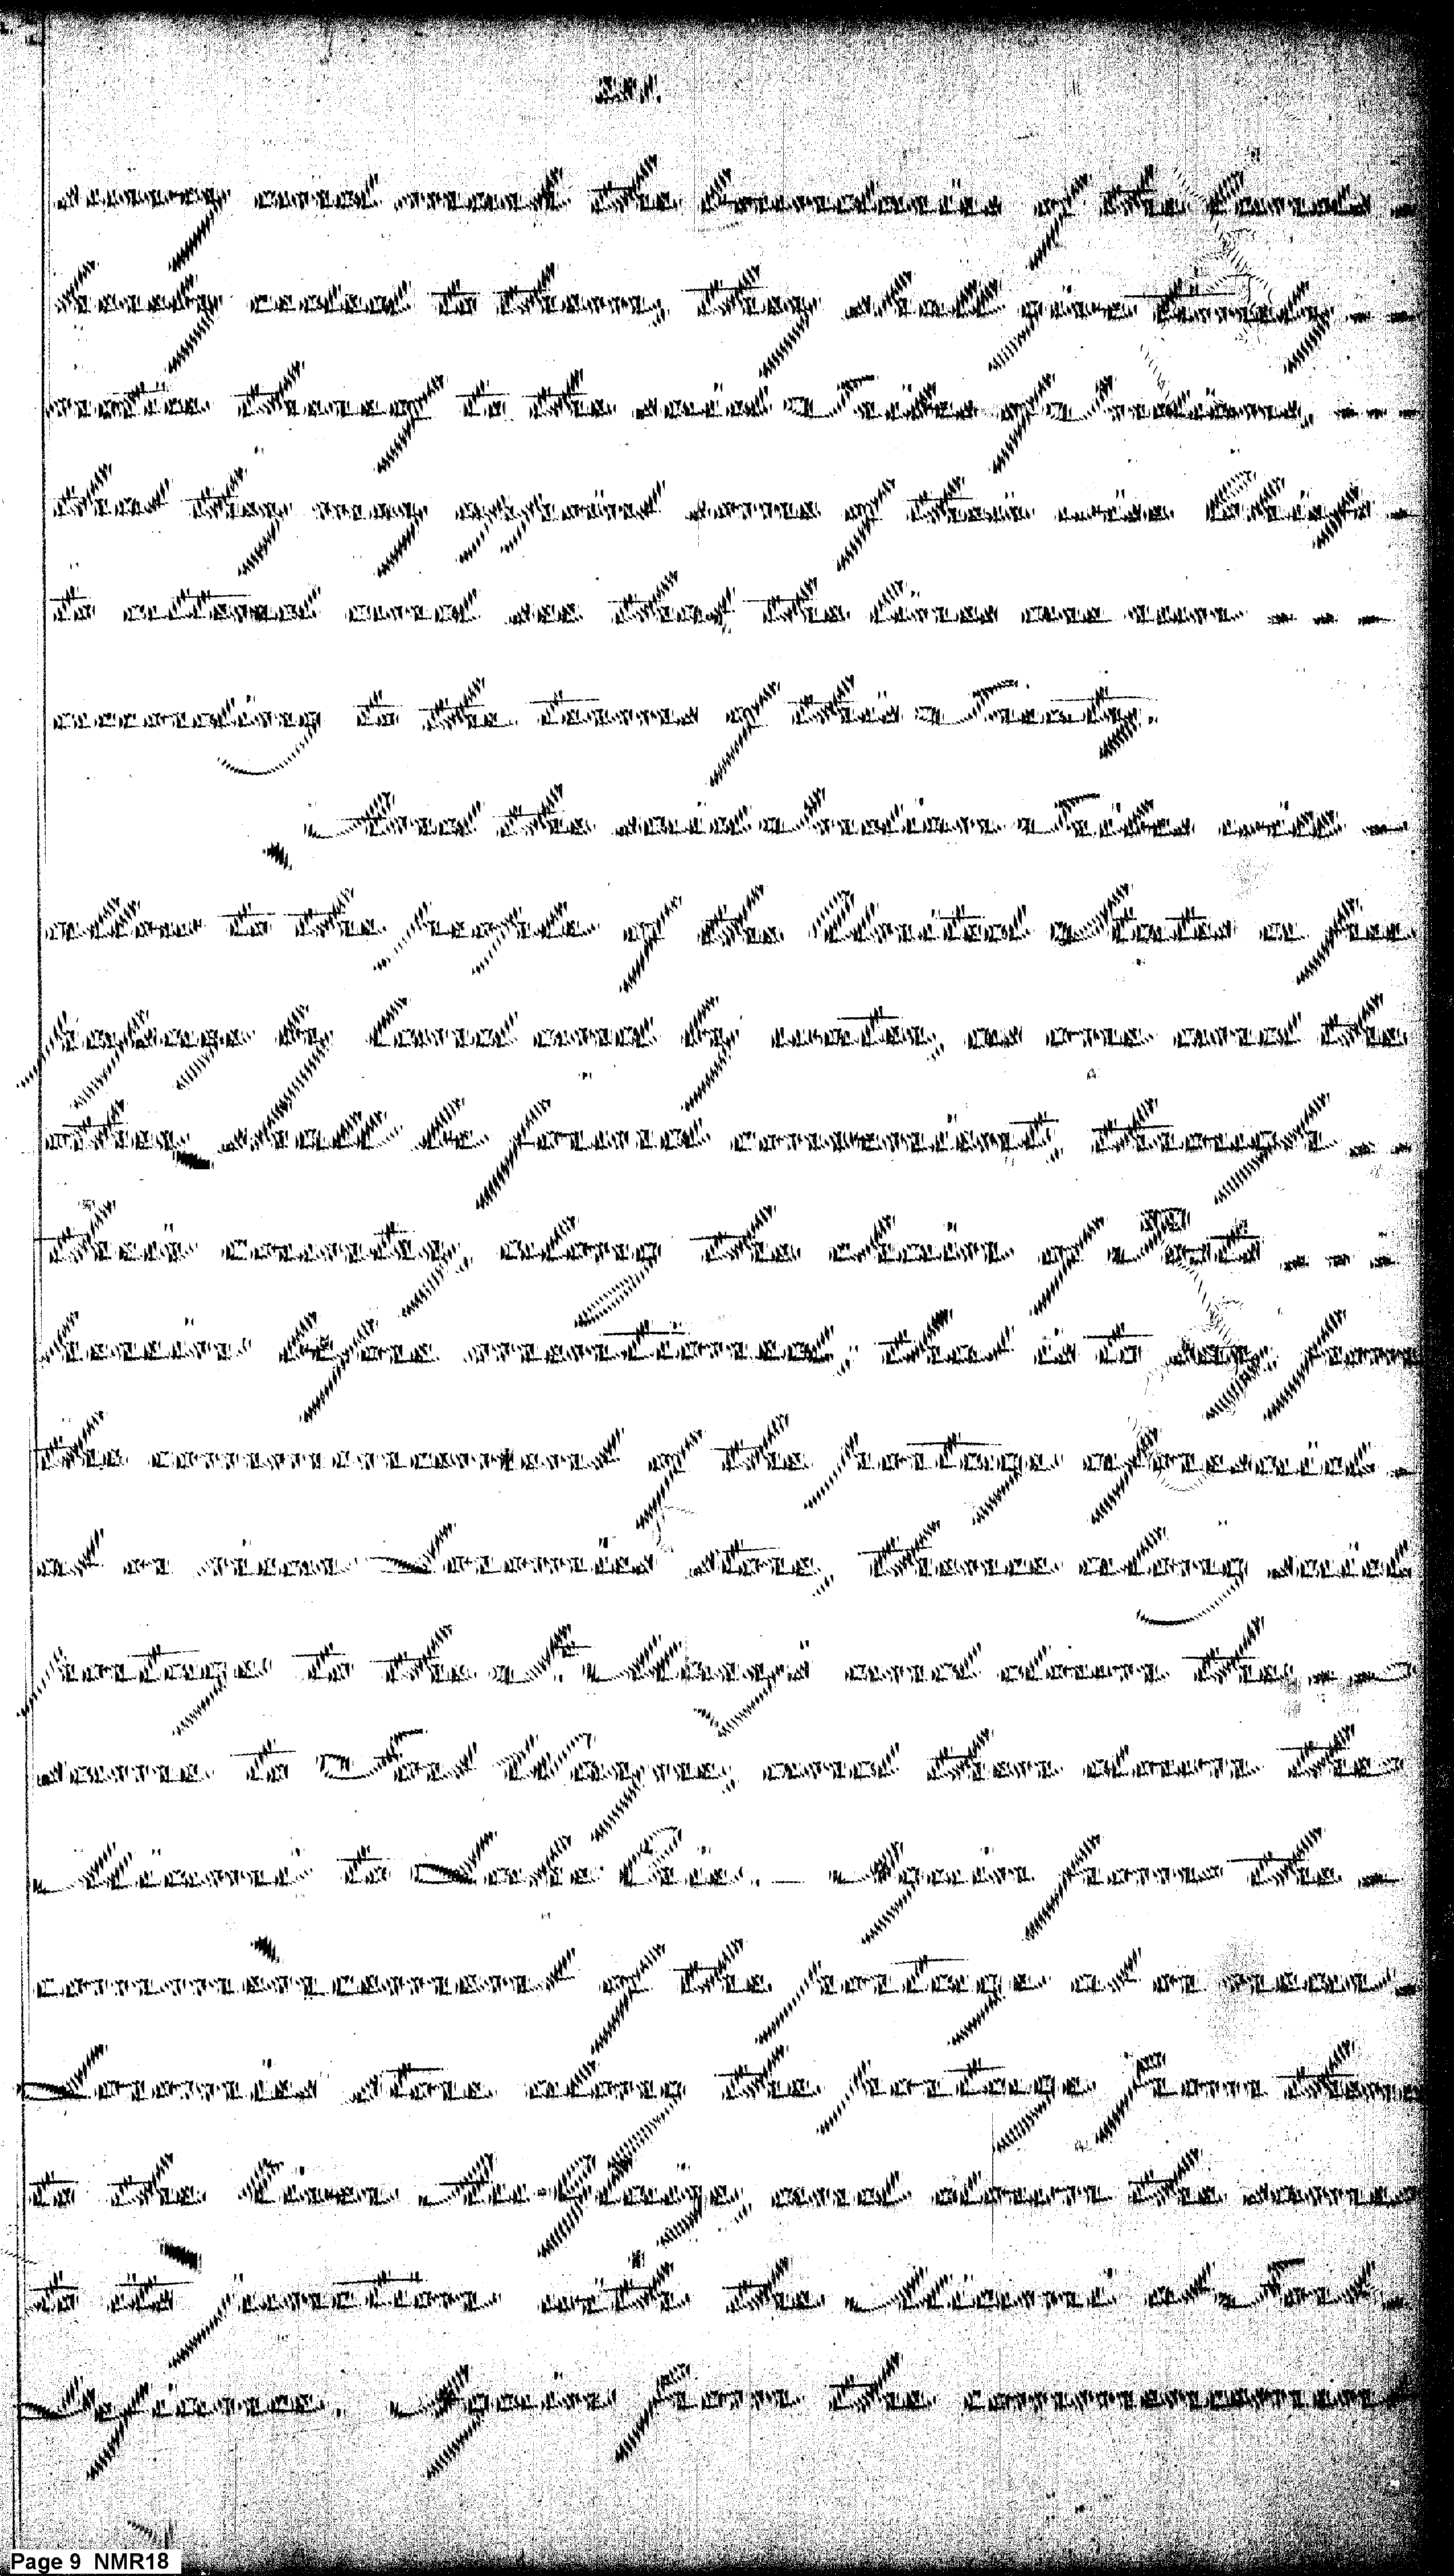 survey and mark the boundaries of the lands -
hereby ceded to them, they shall give timely - -
notice thereof to the said Tribes of Indians, - - -
that they may appoint some of their wise Chiefs -
to attend and see that the lines are run - - -
according to the terms of this Treaty.
And the said Indian Tribes will -
allow to the people of the United States a free
passage by land and by water, as one and the
other shall be found convenient, through - -
their country, along the chain of Posts - - -
herein before mentioned; that is to say, from
the commencement of the portage aforesaid -
at or near Loromies store, thence along said
portage to the St. Mary's and down the - -
same to Fort Wayne, and then down the
Miami to Lake Erie. - Again from the -
commencement of the portage at or near -
Loromies store along the portage from thence
to the River Au-Glaize, and down the same
to its junction with the Miami at Fort -
Defiance. Again from the commencement
Page 9 NMR18